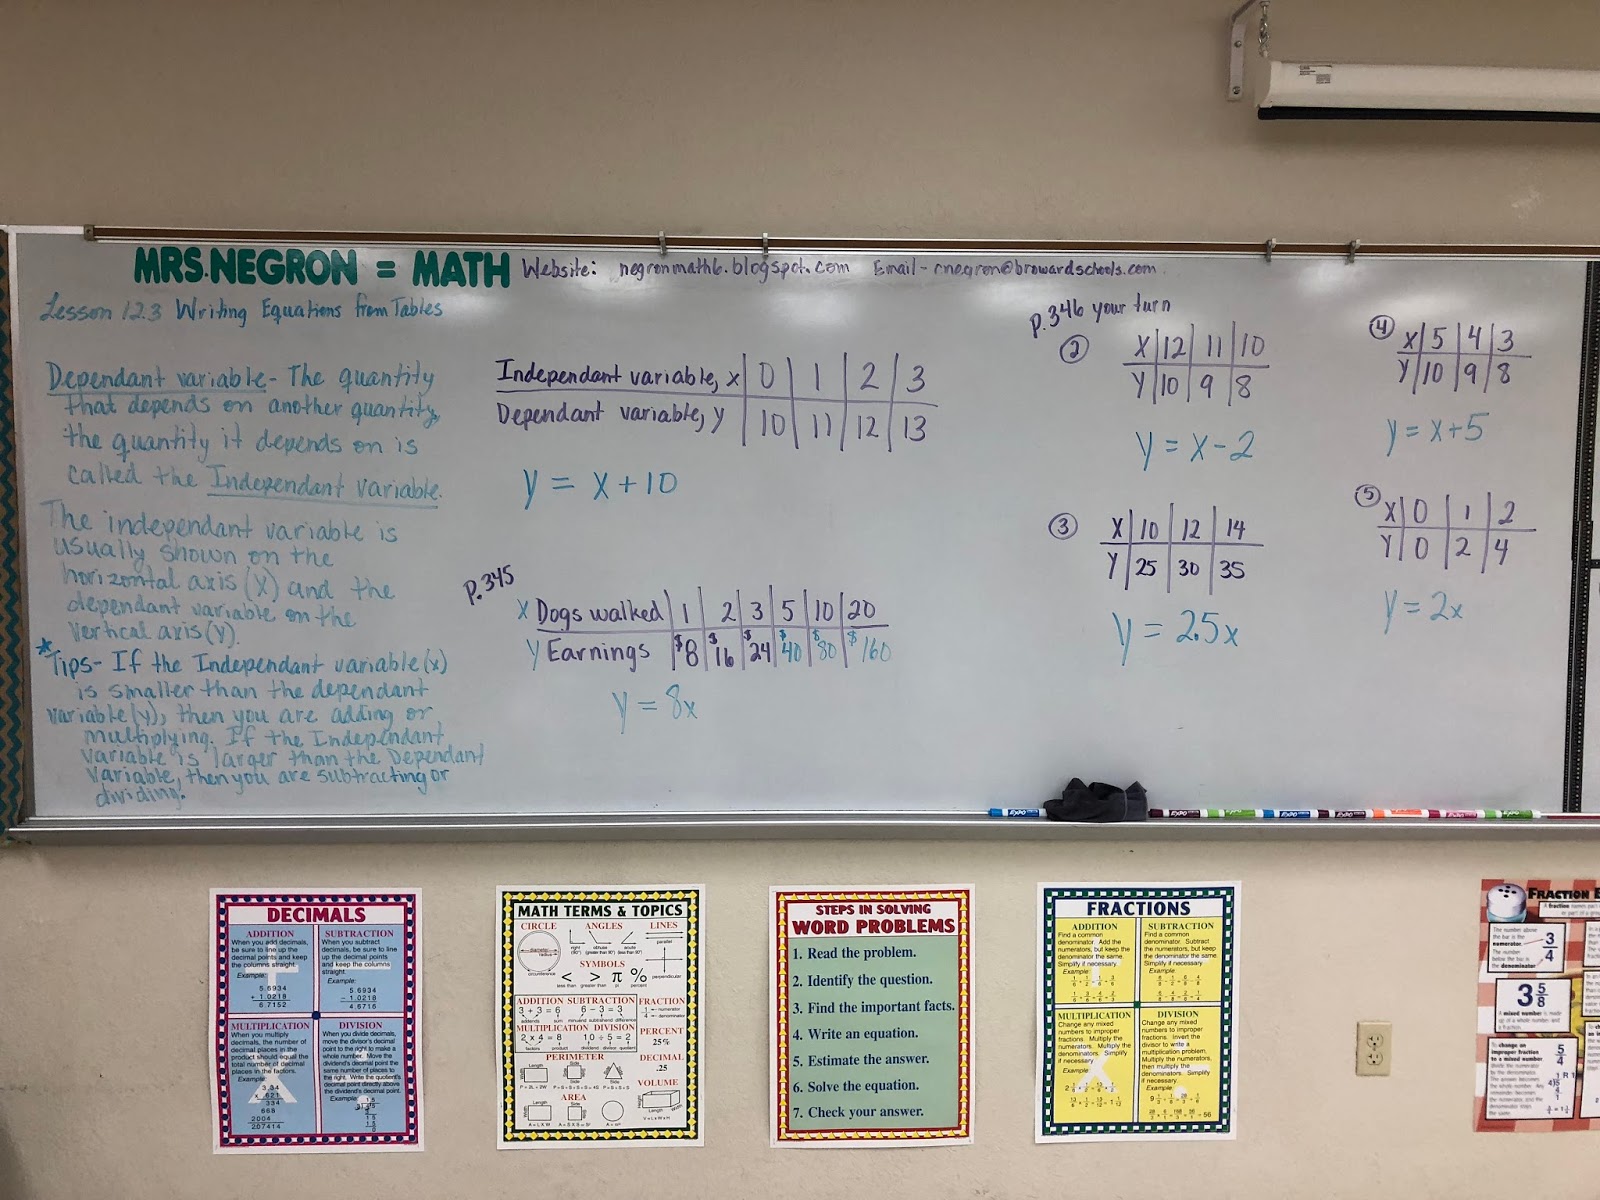 MRS. NEGRON = MATH
Website: negronmath6.blogspot.com Email - cnegron@browardschools.com
Lesson 12.3 Writing Equations from Tables
Dependant variable - The quantity
that depends on another quantity,
the quantity it depends on is
called the Independant variable.
The independant variable is
usually shown on the
horizontal axis (X) and the
dependant variable on the
vertical axis (Y).
* Tips - If the Independant variable (x)
is smaller than the dependant
variable (y), then you are adding or
multiplying. If the Independant
variable is larger than the Dependant
variable, then you are subtracting or
dividing.
Independant variable, x 0 1 2 3
Dependant variable, y 10 11 12 13
y = x + 10
p.345
x Dogs walked 1 2 3 5 10 20
y Earnings $8 $16 $24 $40 $80 $160
y = 8x
p.346 your turn
2
X 12 11 10
Y 10 9 8
y = x - 2
3
X 10 12 14
Y 25 30 35
y = 2.5x
4
X 5 4 3
Y 10 9 8
y = x + 5
5
X 0 1 2
Y 0 2 4
y = 2x
EXPO
EXPO
EXPO
EXPO
DECIMALS
ADDITION
When you add decimals,
be sure to line up the
decimal points and keep
the columns straight.
Example:
5.6934
+ 1.0218
6.7152
SUBTRACTION
When you subtract
decimals, be sure to line
up the decimal points
and keep the columns
straight.
Example:
5.6934
- 1.0218
4.6716
MULTIPLICATION
When you multiply
decimals, the number of
decimal places in the
product should equal the
total number of decimal
places in the factors.
Example:
3.34
x .621
334
668
2004
2.07414
DIVISION
When you divide decimals,
move the divisor's decimal
point to the right to make a
whole number. Move the
dividend's decimal point the
same number of places to
the right. Write the quotient's
decimal point directly above
the dividend's decimal point.
Example:
MATH TERMS & TOPICS
CIRCLE
diameter
radius
circumference
ANGLES
right
(90°)
obtuse
(greater than 90°)
acute
(less than 90°)
LINES
parallel
perpendicular
SYMBOLS
< > π %
less than greater than pi percent
ADDITION SUBTRACTION
3 + 3 = 6 6 - 3 = 3
addends sum minuend subtrahend difference
MULTIPLICATION DIVISION
2 x 4 = 8 10 ÷ 5 = 2
factors product dividend divisor quotient
FRACTION
numerator
denominator
PERCENT
25%
DECIMAL
.25
PERIMETER
AREA
VOLUME
STEPS IN SOLVING
WORD PROBLEMS
1. Read the problem.
2. Identify the question.
3. Find the important facts.
4. Write an equation.
5. Estimate the answer.
6. Solve the equation.
7. Check your answer.
FRACTIONS
ADDITION
Find a common
denominator. Add the
numerators, but keep the
denominator the same.
Simplify if necessary.
Example:
SUBTRACTION
Find a common
denominator. Subtract
the numerators, but keep
the denominator the same.
Simplify if necessary.
Example:
MULTIPLICATION
Change any mixed
numbers to improper
fractions. Multiply the
numerators. Multiply the
denominators. Simplify
if necessary.
Example:
DIVISION
Change any mixed
numbers to improper
fractions. Invert the
divisor to write a
multiplication problem.
Multiply the numerators,
then multiply the
denominators. Simplify
if necessary.
Example:
FRACTION
The number above
the bar is the
numerator.
The number
below the bar is
the denominator.
3/4
3 5/8
A mixed number is made
up of a whole number and
a fraction.
To change an
improper fraction
to a mixed number
5/4